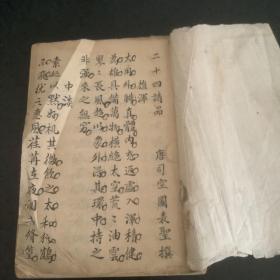 二十四詩品　唐司空圖表聖撰
雄渾
大用外腓真體內充返虛入渾積健
為雄具備萬物橫絕太空荒荒油雲
寥寥長風超以象外得其環中持之
非強來之無窮
沖淡
素處以默妙機其微飲之太和獨鶴
與飛猶之惠風荏苒在衣閱音修篁